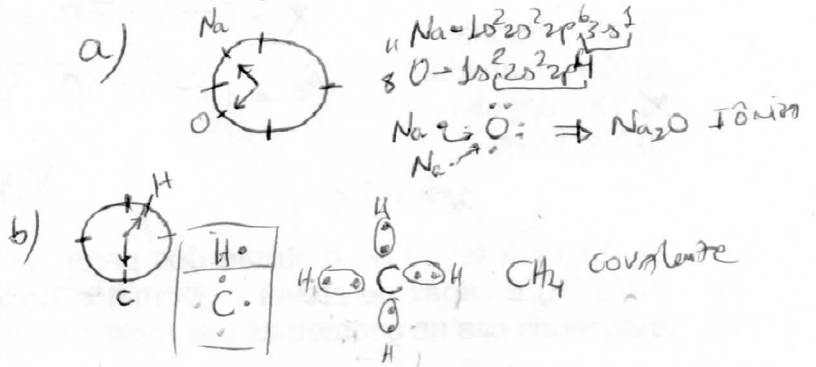 a)
Na
O
₁₁Na - 1s²2s²2p⁶3s¹
₈O - 1s²2s²2p⁴
Na· ·Ö: ⇒ Na₂O Iônico
Na·
b)
H
C
H·
·C·
H
H C H CH₄ covalente
H